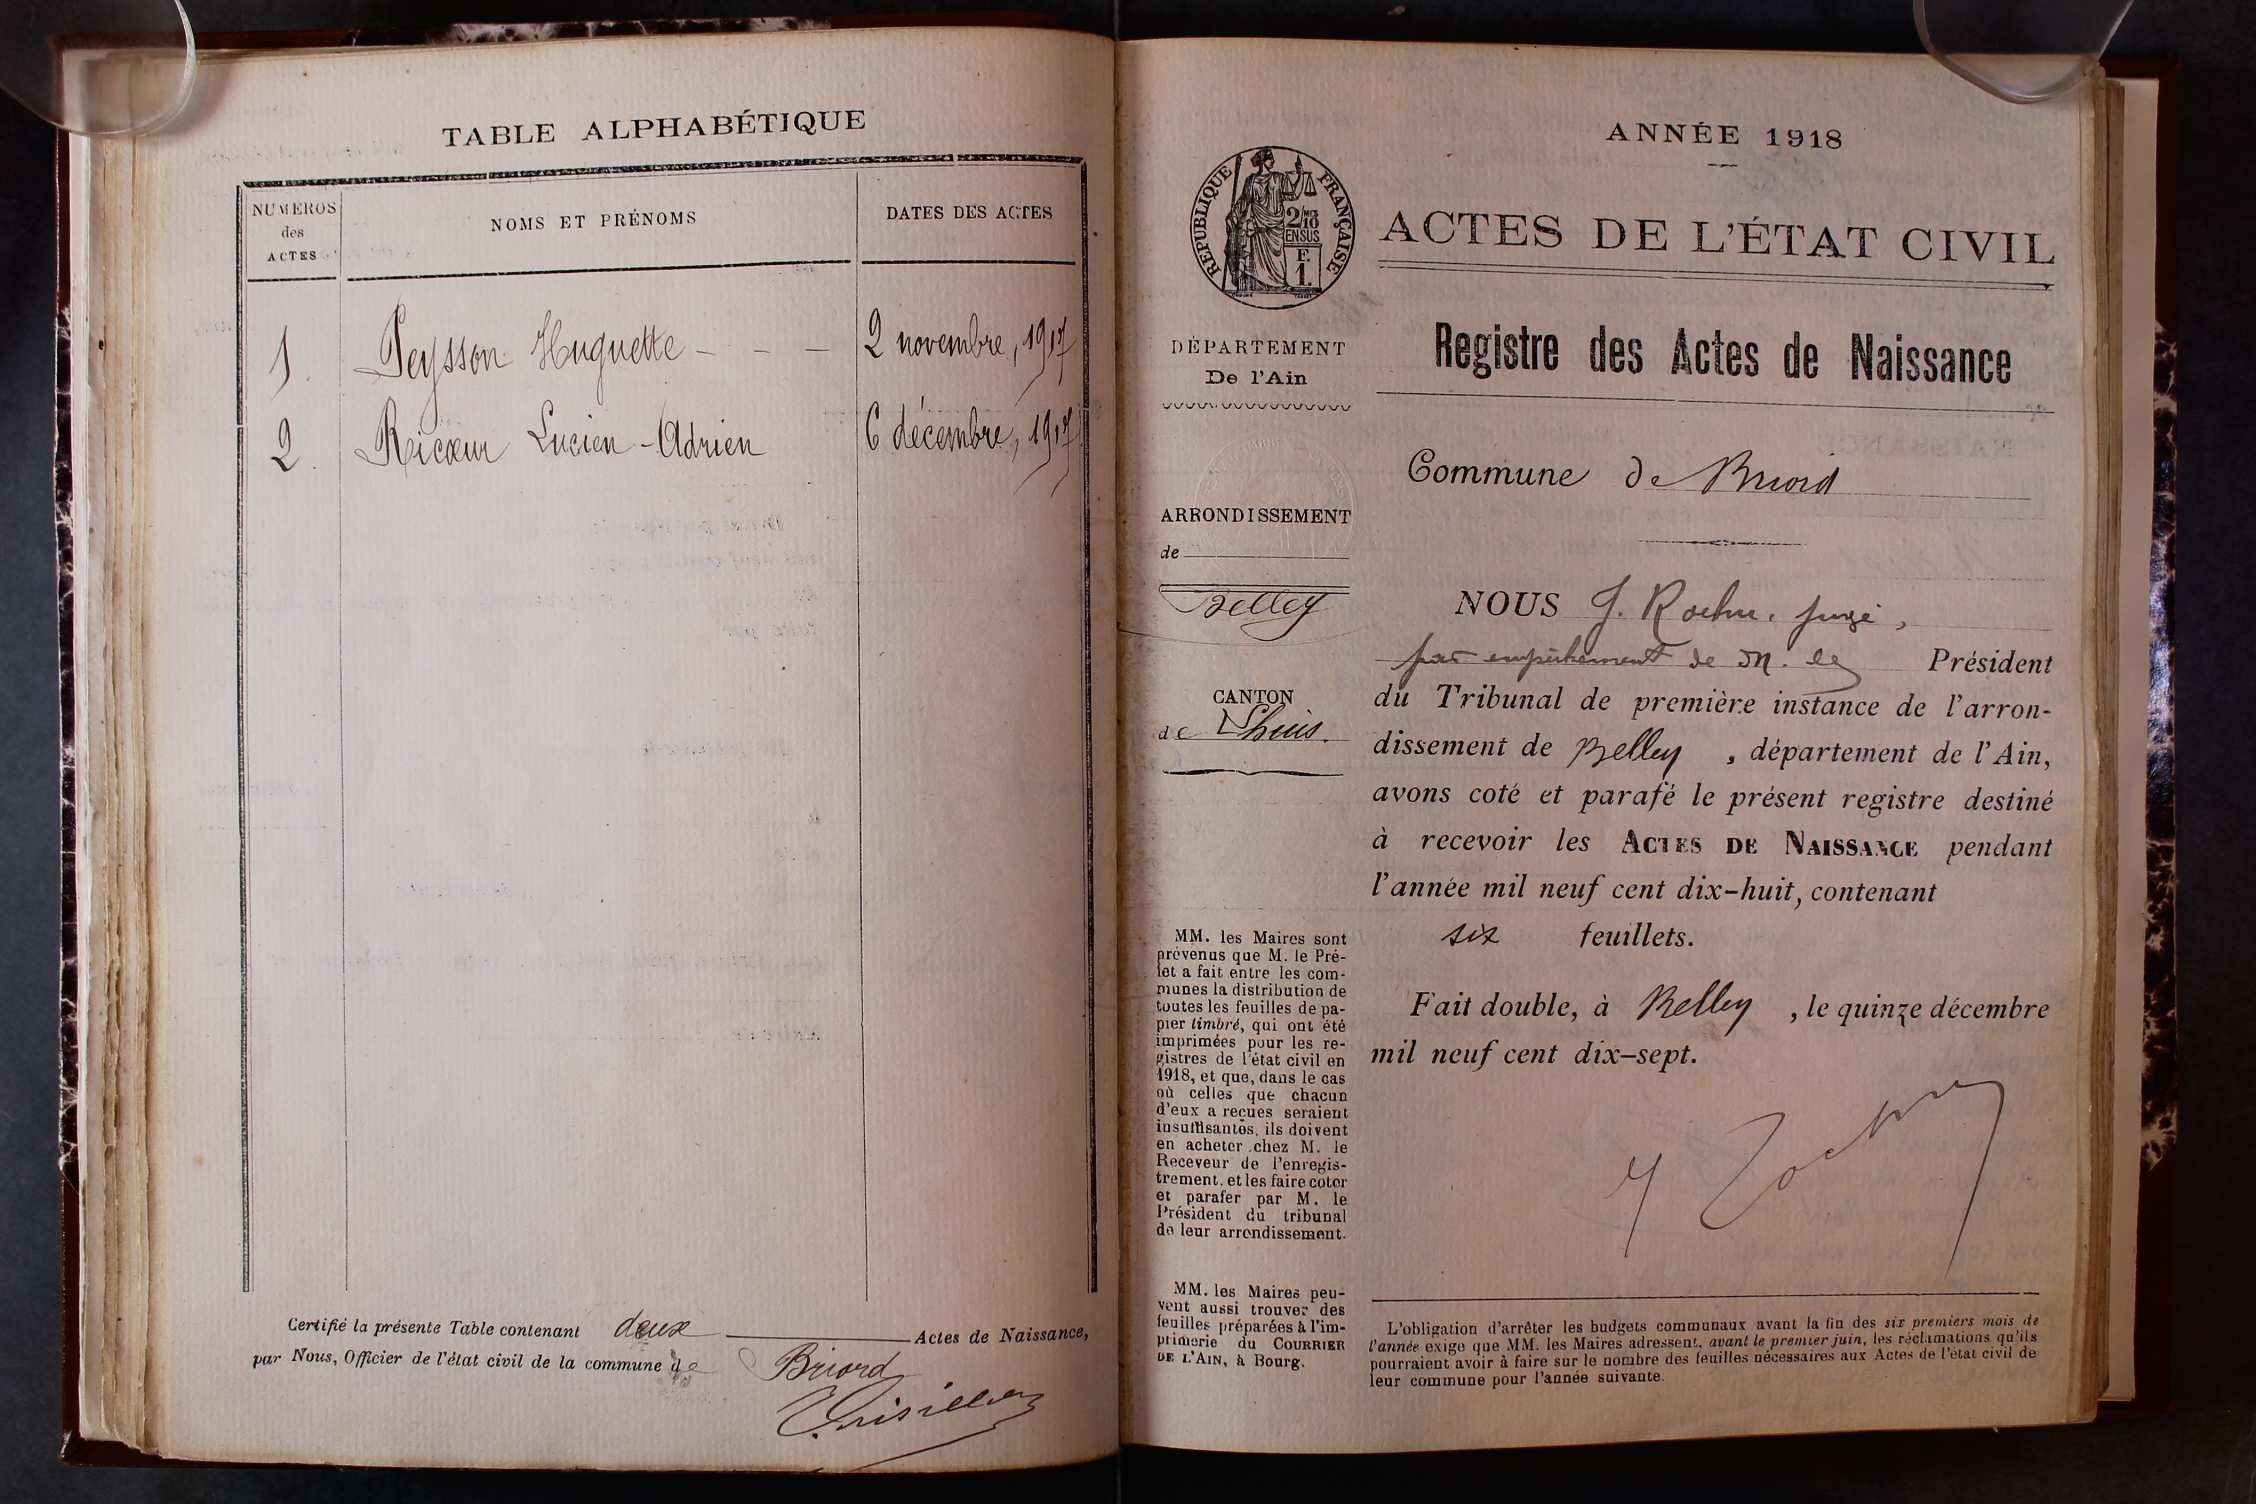 TABLE ALPHABÉTIQUE
NUMEROS
des
ACTES
NOMS ET PRÉNOMS
DATES DES ACTES
1. Peysson Huguette - - - 2 novembre, 1917
2. Ricœur Lucien-Adrien 6 décembre, 1917
Certifié la présente Table contenant deux Actes de Naissance,
par Nous, Officier de l'état civil de la commune de Briord
RÉPUBLIQUE FRANÇAISE
2/10
EN SUS
F.
1.
DÉPARTEMENT
De l'Ain
ARRONDISSEMENT
de
Belley
CANTON
de Lhuis.
MM. les Maires sont
prévenus que M. le Pré-
fet a fait entre les com-
munes la distribution de
toutes les feuilles de pa-
pier timbré, qui ont été
imprimées pour les re-
gistres de l'état civil en
1918, et que, dans le cas
où celles que chacun
d'eux a reçues seraient
insuffisantes, ils doivent
en acheter chez M. le
Receveur de l'enregis-
trement, et les faire coter
et parafer par M. le
Président du tribunal
de leur arrondissement.
MM. les Maires peu-
vent aussi trouver des
feuilles préparées à l'im-
primerie du COURRIER
DE L'AIN, à Bourg.
ANNÉE 1918
ACTES DE L'ÉTAT CIVIL
Registre des Actes de Naissance
Commune de Briord
NOUS J. juge,
par empêchement de M. le Président
du Tribunal de première instance de l'arron-
dissement de Belley, département de l'Ain,
avons coté et parafé le présent registre destiné
à recevoir les ACTES DE NAISSANCE pendant
l'année mil neuf cent dix-huit, contenant
six feuillets.
Fait double, à Belley, le quinze décembre
mil neuf cent dix-sept.
L'obligation d'arrêter les budgets communaux avant la fin des six premiers mois de
l'année exige que MM. les Maires adressent, avant le premier juin, les réclamations qu'ils
pourraient avoir à faire sur le nombre des feuilles nécessaires aux Actes de l'état civil de
leur commune pour l'année suivante.